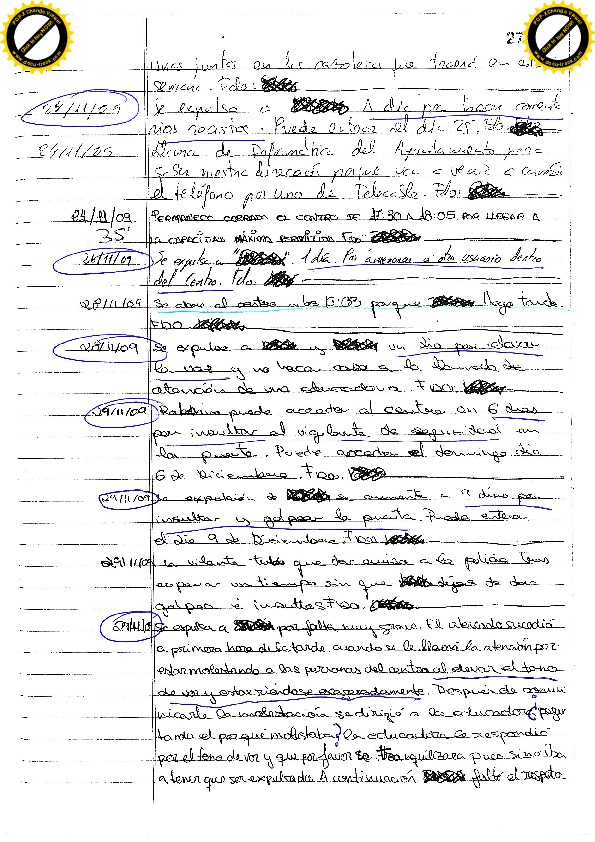 27
unas juntas en las
semana. Fdo:
24/11/09 Se expulsa a 1 día por hacer comenta
rios racistas. Puede entrar el día 25. Fdo
24/11/09 Llaman de Informática del Ayuntamiento para
saber nuestra dirección porque van a venir a cambiar
el teléfono por uno de Telecable. Fdo:
24/11/09 PERMANECE CERRADO EL CENTRO DE 17:30 A 18:05 POR LLEGAR A
35' LA CAPACIDAD MÁXIMA PERMITIDA FDO:
26/11/09 Se expulsa a " " 1 día. Por amenazar a otro usuario dentro
del Centro. Fdo.
28/11/09 Se abre el centro a las porque llega tarde.
FDO
28/11/09 Se expulsa a y un día por elevar
la voz y no hacer caso a la llamada de
atención de una educadora. FDO:
29/11/09 puede acceder al centro en 6 días
por insultar al vigilante de seguridad en
la puerta. Puede acceder el domingo día
6 de Diciembre. FDO.
29/11/09 La expulsión de se aumenta a 9 días por
insultar y golpear la puerta. Puede entrar
el día 9 de Diciembre. FDO
29/11/09 La vilante tubo que dar aviso a la policía tras
esperar un tiempo sin que dejase de dar
golpes e insultos FDO.
29/11/09 Se expulsa a por falta muy grave. El altercado sucedió
a primera hora de la tarde, cuando se le llamó la atención por
estar molestando a las personas del centro al elevar el tono
de voz y estar riéndose exageradamente. Después de comu
nicarle la molestación se dirigió a la educadora pregun
tando el por qué molestaba? la educadora le respondió
por el tono de voz y que por favor se tranquilizara pues si no iba
a tener que ser expulsada. A continuación faltó el respeto